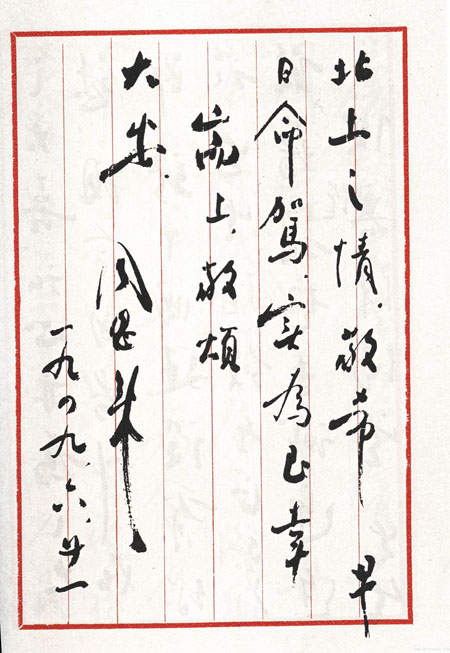 北上之情，敬希 早
日命駕，实為至幸
耑上，敬頌
大安. 周恩来
一九四九、六、廿一